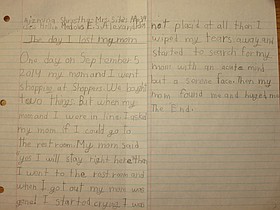 The day I lost my mom
One day on September 5
2014 my mom and I went
shopping at Shoppers. We bought
two things. But when my
mom and I were in line I asked
my mom if I could go to
the restroom. My mom said
yes I will stay right here. Than
I went to the restroom and
when I got out my mom was
gone! I started crying I was
not placid at all than I
wiped my tears away and
started to search for my
mom with an acute mind
but a serene face. Than my
mom found me and hugged me.
The End.